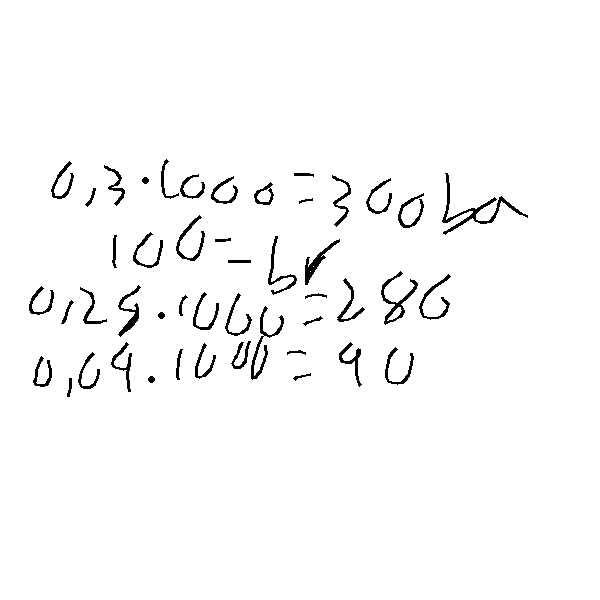 0,3·1000=300ba
100=br
0,28·1000=280
0,09·1000=90